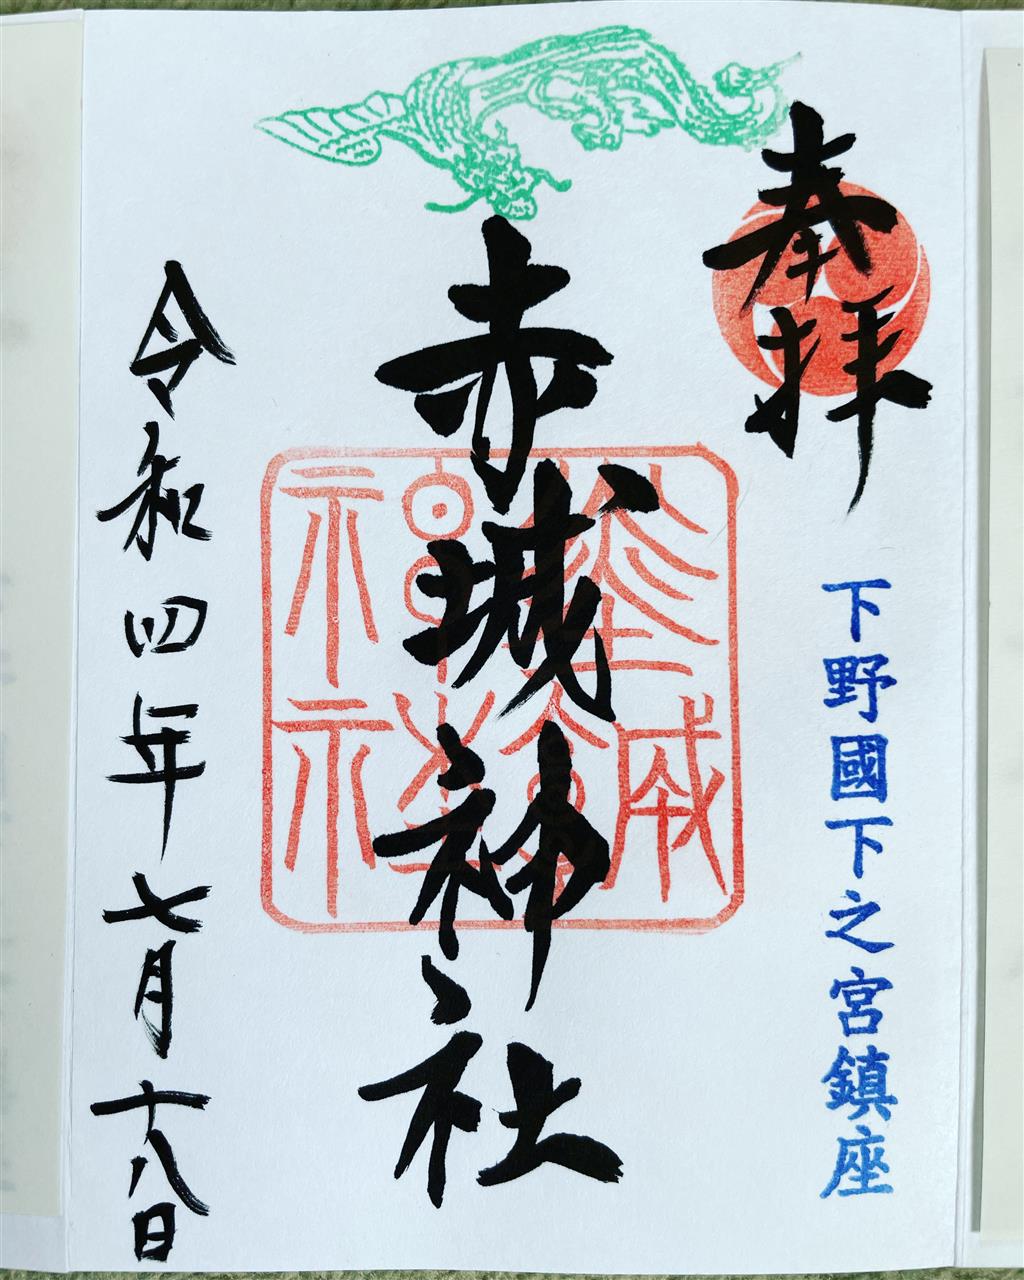 奉拝
下野國下之宮鎮座
赤城神社
令和四年七月十八日